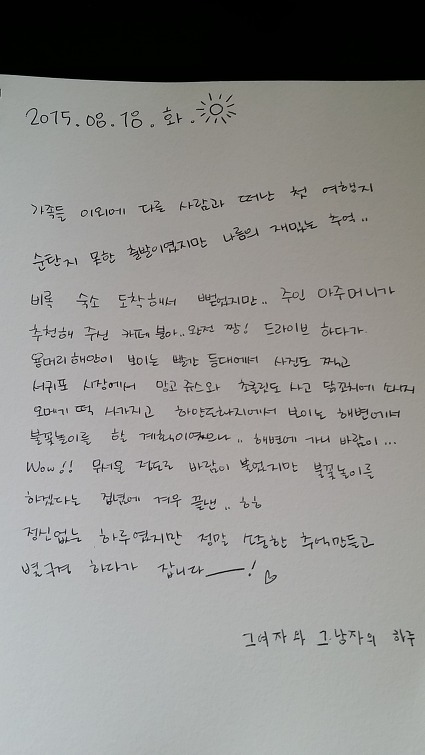 2015.08.18.화.
가족들 이외에 다른 사람과 떠난 첫 여행지
순탄지 못한 출발이였지만 나름의 재밌는 추억..
비록 숙소 도착해서 뻗었지만.. 주인 아주머니가
추천해 주신 카페 봄아..완전 짱! 드라이브 하다가
용머리 해안이 보이는 빨간 등대에서 사진도 찍고
서귀포 시장에서 망고 쥬스와 초콜릿도 사고 닭꼬치에
오메기 떡 사가지고 에서 보이는 해변에서
불꽃놀이를 할 계획이였으나.. 해변에 가니 바람이...
Wow!! 무서울 정도로 바람이 불었지만 불꽃놀이를
하겠다는 집념에 겨우 끝낸.. 하하
정신없는 하루였지만 정말 소중한 추억만들고
별구경 하다가 잡니다——!♡
그여자와 그남자의 하루